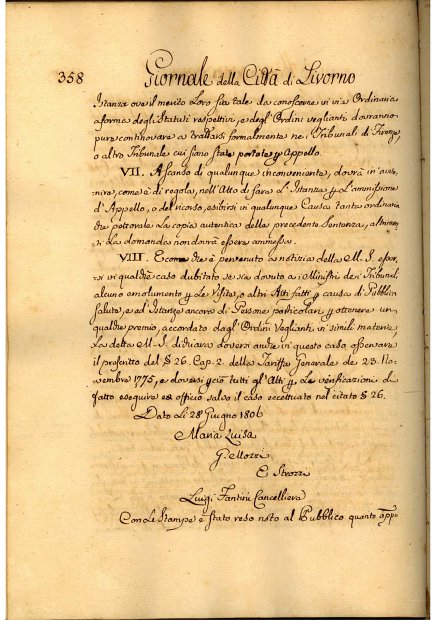 358 Giornale della Città di Livorno
Istanza ove il merito loro sia tale da conoscersi in via Ordinaria
a forma degli Statuti respettivi, e degl'Ordini veglianti dovranno
pure continovare a trattarsi formalmente nei Tribunali di Firenze,
o altro Tribunale cui siano state portate p Appello.
VII. A scanso di qualunque inconveniente, dovrà in avve-
nire, come è di regola, nell'Atto di farsi l'Istanza p l'ammissione
d'Appello, o del ricorso, esibirsi in qualunque Causa tanto ordinaria
che pettorale la copia autentica della precedente Sentenza, altrimen-
ti la domanda non dovrà essere ammessa.
VIII. E come che è pervenuto a notizia della M. S. esser-
si in qualche caso dubitato se sia dovuto ai Ministri dei Tribunali
alcuno emolumento p le Visite, o altri Atti fatti p causa di Pubblica
Salute, e ad Istanze ancora di Persone particolari p ottenere un
qualche premio, accordato dagl'Ordini Veglianti in simili materie,
La detta M. S. dichiara doversi anche in questo caso osservare
il prescritto del § 26. Cap. 2. della Tariffa Generale de 23. No-
vembre 1775, e doversi pciò tutti gl'Atti p le verificazioni di
fatto eseguire ex officio salvo il caso eccettuato nel citato § 26.
Dato Li 28 Giugno 1806
Maria Luisa
G. Mozzi
E Strozzi
Luigi Fantini Cancelliere
Con le Stampe è stato reso noto al Pubblico quanto appo